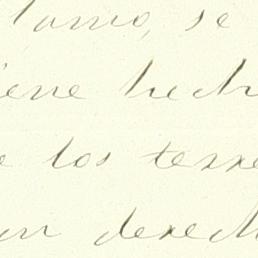 lamo, se
iene hech
e los terre
un derech